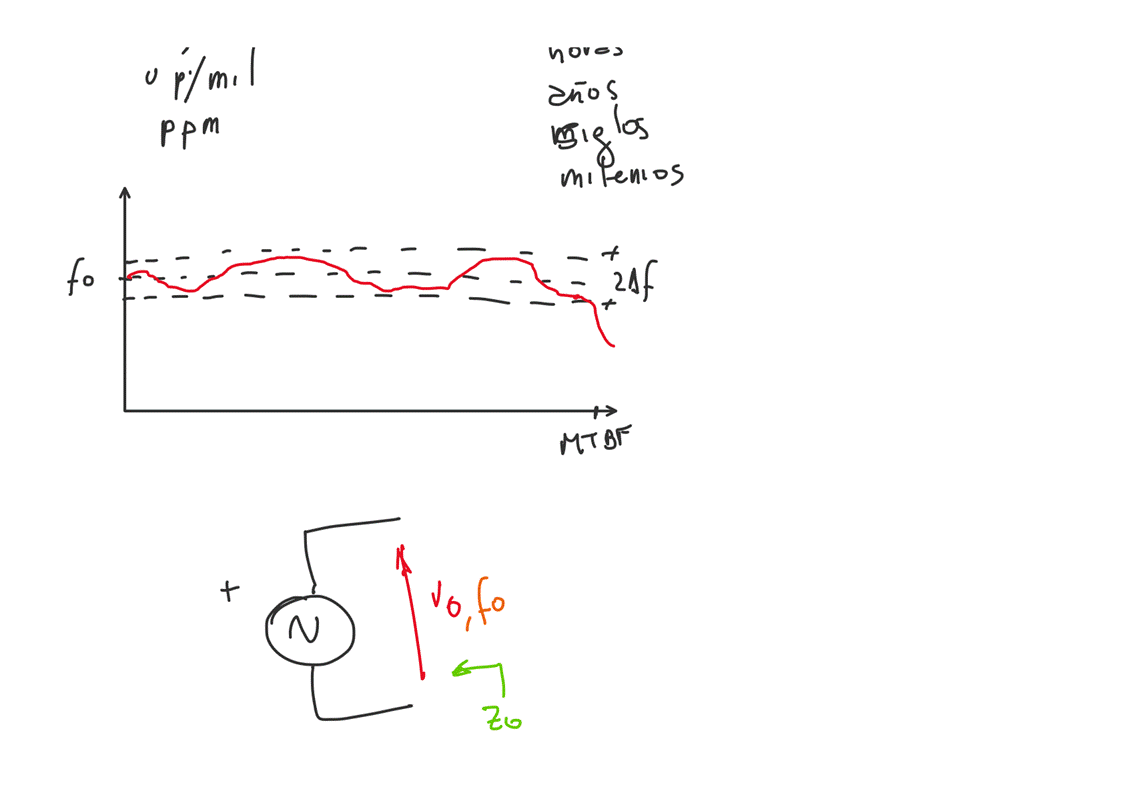 p/mil
ppm
años
siglos
milenios
f0
2Δf
MTBF
+
N
v0, f0
Z0